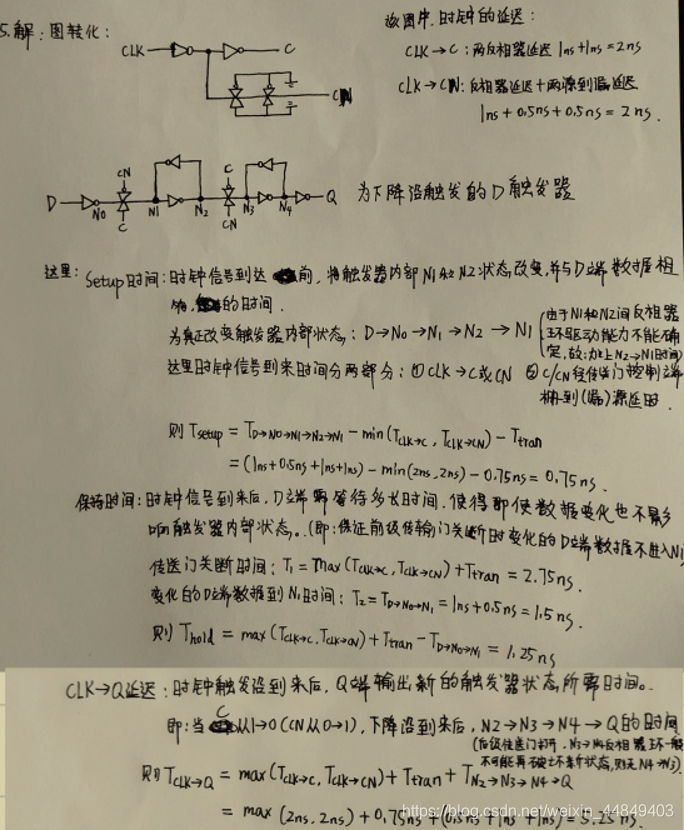 5.解：图转化：
该图中，时钟的延迟：
CLK C
CLK→C：两反相器延迟 1ns+1ns=2ns
CLK→CN：反相器延迟+两源到漏延迟
CN
1ns+0.5ns+0.5ns=2ns.
CN C
D N0 N1 N2 N3 N4 Q 为下降沿触发的D触发器
C CN
这里：Setup时间：时钟信号到达前，将触发器内部N1和N2状态改变，并与D端数据相
的时间.
为真正改变触发器内部状态：D→N0→N1→N2→N1
由于N1和N2间反相器
环驱动能力不能确
定，故：加上N2→N1时间
这里时钟信号到来时间分两部分：①CLK→C或CN ②C/CN经传送门控制端
栅到(漏)源延时.
则 Tsetup = TD→N0→N1→N2→N1 - min(TCLK→C, TCLK→CN) - Ttran
= (1ns+0.5ns+1ns+1ns) - min(2ns, 2ns) - 0.75ns = 0.75ns.
保持时间：时钟信号到来后，D端需等待多长时间，使得即使数据变化也不影
响触发器内部状态。(即：保证前级传输门关断时变化的D端数据不进入N1)
传送门关断时间：T1 = max(TCLK→C, TCLK→CN) + Ttran = 2.75ns.
变化的D端数据到N1时间：T2 = TD→N0→N1 = 1ns+0.5ns = 1.5ns.
则 Thold = max(TCLK→C, TCLK→CN) + Ttran - TD→N0→N1 = 1.25ns
CLK→Q延迟：时钟触发沿到来后，Q端输出新的触发器状态所需时间。
即：当C从1→0 (CN从0→1)，下降沿到来后，N2→N3→N4→Q的时间
(后级传送门打开，N3→N4反相器环一般
不可能再破坏新状态，则无N4→N3).
则 TCLK→Q = max(TCLK→C, TCLK→CN) + Ttran + TN2→N3→N4→Q
= max(2ns, 2ns) + 0.75ns + (0.5ns+1ns+1ns) = 5.25ns.
https://blog.csdn.net/weixin_44849403